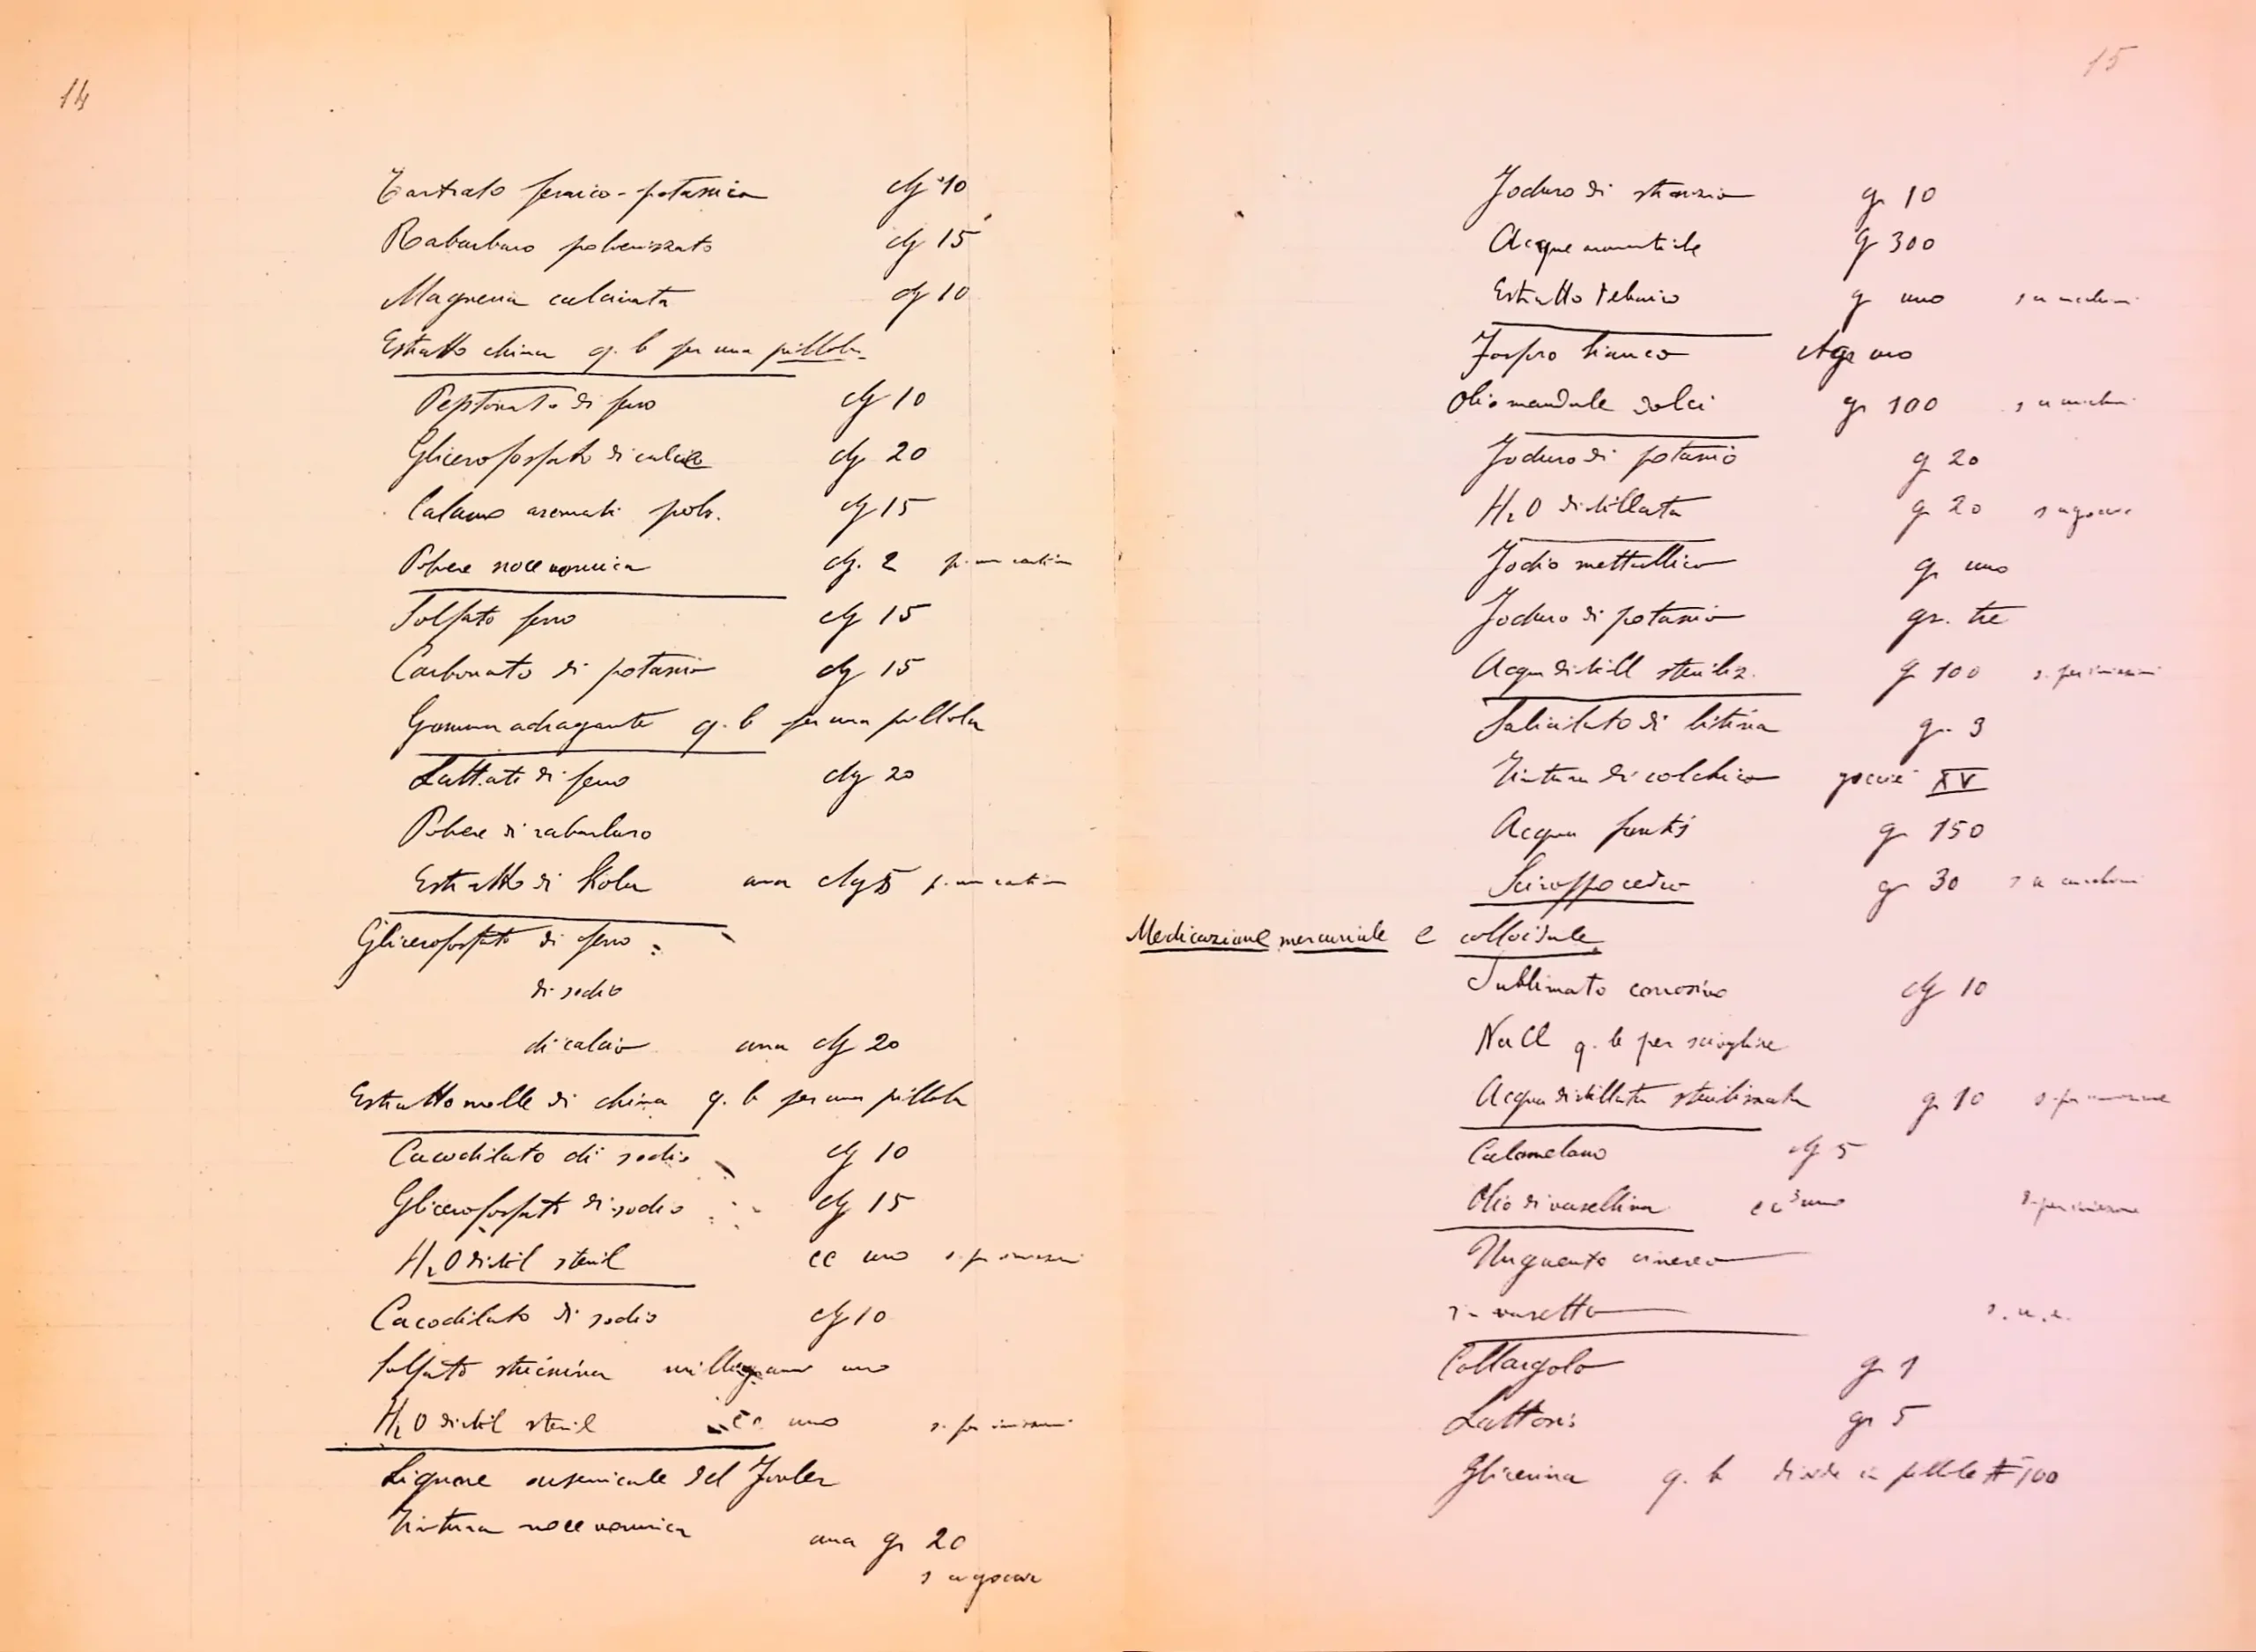 14
Tartrato ferrico-potassico cg 10
Rabarbaro polverizzato cg 15
Magnesia calcinata cg 10
Estratto china q. b per una pillola
Peptonato di ferro cg 10
Glicerofosfato di calce cg 20
Calamo aromati polv. cg 15
Polvere noce vomica cg. 2 p. una cartina
Solfato ferro cg 15
Carbonato di potassio cg 15
Gomma adragante q. b per una pillola
Lattato di ferro cg 20
Polvere di rabarbaro
Estratto di Kola ana cg 5 p. una cartina
Glicerofosfato di ferro
di sodio
di calcio ana cg 20
Estratto molle di china q. b per una pillola
Cacodilato di sodio cg 10
Glicerofosfato di sodio cg 15
H2O distil steril cc uno s. per iniezioni
Cacodilato di sodio cg 10
Solfato stricnina milligrammo uno
H2O distil steril cc uno s. per iniezioni
Liquore arsenicale del Fowler
Tintura noce vomica ana gr 20
s a gocce
15
Joduro di stronzio g 10
Acqua g 300
Estratto tebaico g uno s a cucchiai
Fosforo bianco cgr uno
Olio mandule dolci gr 100 s a cucchiai
Joduro di potassio g 20
H2O distillata g 20 s a gocce
Jodio mettallico g uno
Joduro di potassio gr. tre
Acqua distill steriliz. g 100 s. per iniezioni
Salicilato di litina gr. 3
Tintura di colchico goccie XV
Acqua fontis g 150
Sciroppo cedro gr 30 s a cucchiai
Medicazione mercuriale e colloidale
Sublimato corrosivo cg 10
NaCl q. b per sciogliere
Acqua distillata sterilizzata g 10 s. per iniezione
Calomelano cg 5
Olio di vasellina cc³ uno s. per iniezione
Unguento cinereo
in vasetto s. u. e.
Collargolo g 1
Lattosio gr 5
Glicerina q. b divide in pillole # 100